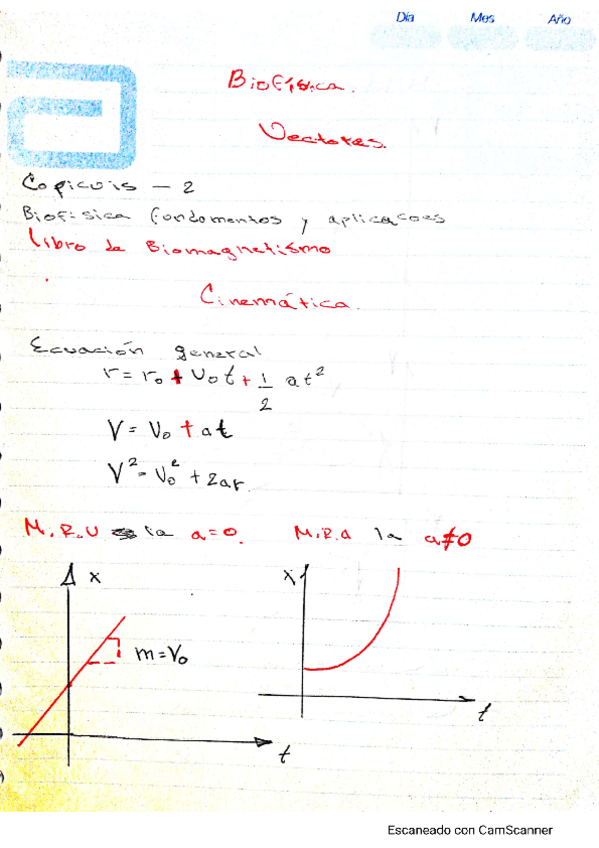 Día Mes Año
Biofísica.
Vectores.
Copicuis - 2
Biofisica fundamentos y aplicaçoes
Libro de Biomagnetismo
Cinemática.
Ecuación general
r = r₀ + v₀t + 1/2 at²
V = V₀ + at
V² = V₀² + 2ar.
M.R.U la a=0. M.R.A la a≠0
x x
m = V₀
t t
Escaneado con CamScanner